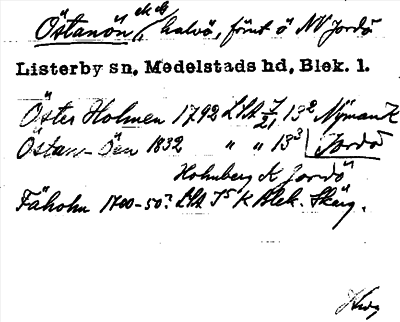 Östanön ek db halvö, förut ö NV Jordö
Listerby sn, Medelstads hd, Blek. l.
Öster Holmen 1792 LSA 7/21 13² Nyman K
Östan-Öen 1832 " " 13³ Jordö
Holmberg K Jordö
Fäholm 1700-50? LSA J5 K Blek. Skärg.